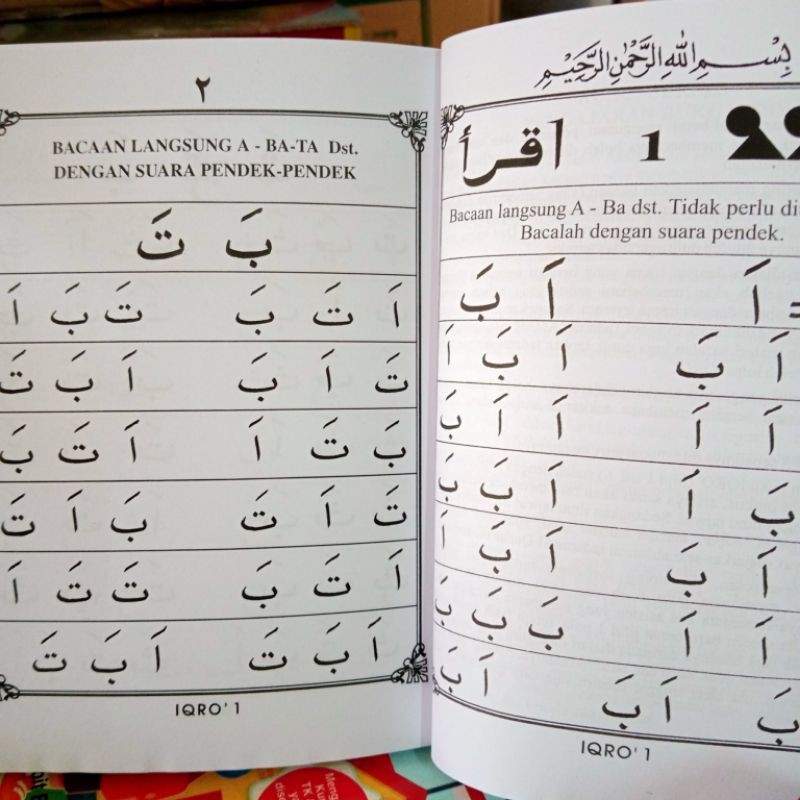 بِسْمِ اللهِ الرَّحْمٰنِ الرَّحِيْمِ
اقرأ 1
Bacaan langsung A - Ba dst. Tidak perlu
Bacalah dengan suara pendek.
= اَ اَ بَ
اَ بَ اَ بَ اَ
اَ اَ اَ اَ بَ
بَ اَ اَ بَ بَ
اَ بَ اَ بَ اَ
اَ اَ بَ بَ بَ
بَ اَ بَ اَ بَ
IQRO' 1
٢
BACAAN LANGSUNG A - BA-TA Dst.
DENGAN SUARA PENDEK-PENDEK
بَ تَ
اَ تَ بَ تَ بَ اَ
تَ اَ بَ اَ بَ تَ
بَ تَ اَ اَ تَ بَ
تَ اَ تَ بَ اَ تَ
اَ تَ بَ تَ تَ اَ
اَ بَ تَ اَ بَ تَ
IQRO' 1